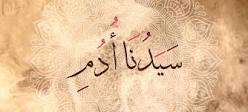 سَيِّدُنَا أُدُمِ